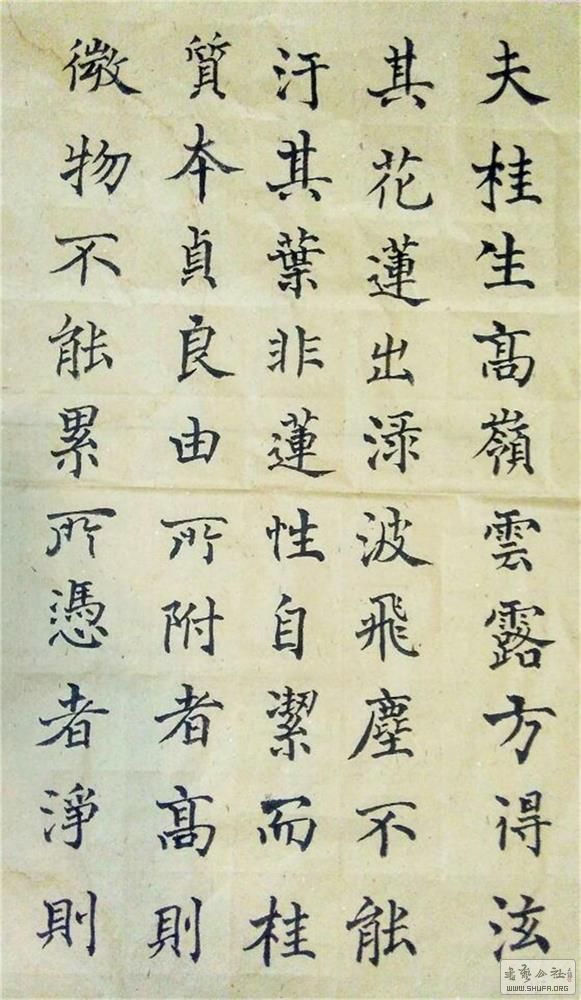 夫桂生高嶺雲露方得泫
其花蓮出淥波飛塵不能
汙其葉非蓮性自潔而桂
質本貞良由所附者高則
微物不能累所憑者淨則
WWW.SHUFA.ORG